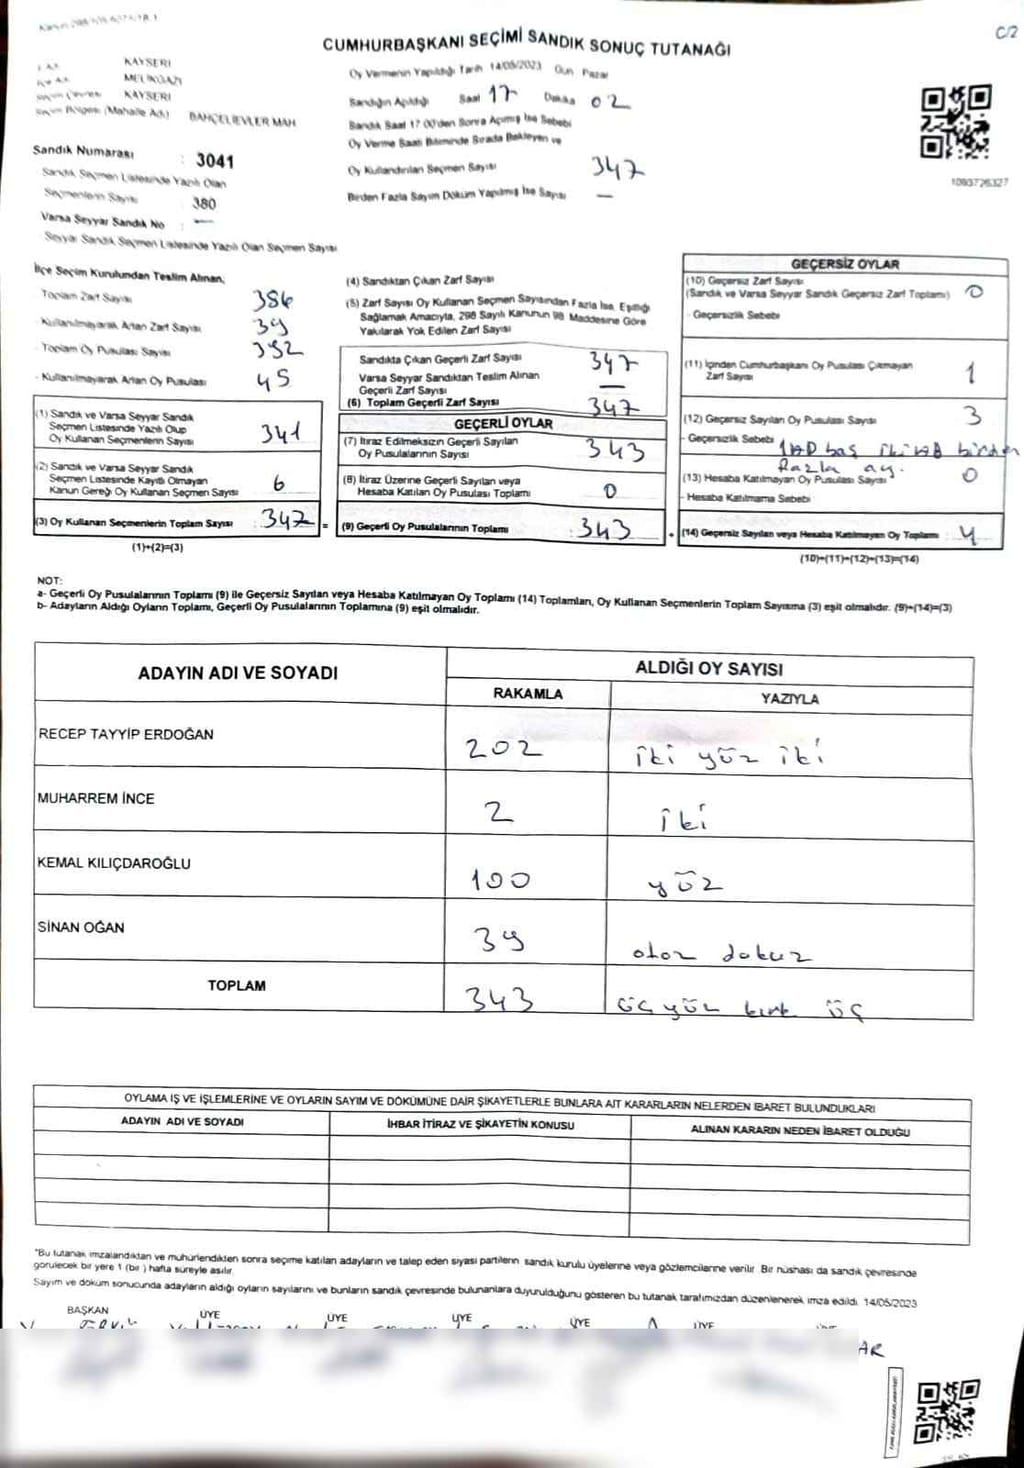 C/2
CUMHURBAŞKANI SEÇİMİ SANDIK SONUÇ TUTANAĞI
KAYSERİ
MELİKGAZİ
KAYSERİ
Seçim Bölgesi (Mahalle Adı) BAHÇELİEVLER MAH
Sandık Numarası : 3041
Sandık Seçmen Listesinde Yazılı Olan
Seçmenlerin Sayısı : 380
Varsa Seyyar Sandık No : —
Seyyar Sandık Seçmen Listesinde Yazılı Olan Seçmen Sayısı
Oy Vermenin Yapıldığı Tarih 14/05/2023 Gün Pazar
Sandığın Açıldığı Saat 17 Dakika 02
Sandık Saat 17:00'den Sonra Açılmış İse Sebebi
Oy Verme Saati Bitiminde Sırada Bekleyen ve
Oy Kullandırılan Seçmen Sayısı 347
Birden Fazla Sayım Döküm Yapılmış İse Sayısı —
1093726327
İlçe Seçim Kurulundan Teslim Alınan;
Toplam Zarf Sayısı 386
- Kullanılmayarak Artan Zarf Sayısı 39
- Toplam Oy Pusulası Sayısı 392
- Kullanılmayarak Artan Oy Pusulası 45
(1) Sandık ve Varsa Seyyar Sandık
Seçmen Listesinde Yazılı Olup
Oy Kullanan Seçmenlerin Sayısı 341
(2) Sandık ve Varsa Seyyar Sandık
Seçmen Listesinde Kayıtlı Olmayan
Kanun Gereği Oy Kullanan Seçmen Sayısı 6
(3) Oy Kullanan Seçmenlerin Toplam Sayısı : 347 =
(1)+(2)=(3)
(4) Sandıktan Çıkan Zarf Sayısı
(5) Zarf Sayısı Oy Kullanan Seçmen Sayısından Fazla İse, Eşitliği
Sağlamak Amacıyla, 298 Sayılı Kanunun 98. Maddesine Göre
Yakılarak Yok Edilen Zarf Sayısı
Sandıkta Çıkan Geçerli Zarf Sayısı 347
Varsa Seyyar Sandıktan Teslim Alınan
Geçerli Zarf Sayısı —
(6) Toplam Geçerli Zarf Sayısı 347
GEÇERLİ OYLAR
(7) İtiraz Edilmeksizin Geçerli Sayılan
Oy Pusulalarının Sayısı 343
(8) İtiraz Üzerine Geçerli Sayılan veya
Hesaba Katılan Oy Pusulası Toplamı 0
(9) Geçerli Oy Pusulalarının Toplamı : 343 +
GEÇERSİZ OYLAR
(10) Geçersiz Zarf Sayısı
(Sandık ve Varsa Seyyar Sandık Geçersiz Zarf Toplamı) 0
- Geçersizlik Sebebi
(11) İçinden Cumhurbaşkanı Oy Pusulası Çıkmayan
Zarf Sayısı 1
(12) Geçersiz Sayılan Oy Pusulası Sayısı 3
- Geçersizlik Sebebi
fazla oy.
(13) Hesaba Katılmayan Oy Pusulası Sayısı 0
- Hesaba Katılmama Sebebi
(14) Geçersiz Sayılan veya Hesaba Katılmayan Oy Toplamı : 4
(10)+(11)+(12)+(13)=(14)
NOT:
a- Geçerli Oy Pusulalarının Toplamı (9) ile Geçersiz Sayılan veya Hesaba Katılmayan Oy Toplamı (14) Toplamları, Oy Kullanan Seçmenlerin Toplam Sayısına (3) eşit olmalıdır. (9)+(14)=(3)
b- Adayların Aldığı Oyların Toplamı, Geçerli Oy Pusulalarının Toplamına (9) eşit olmalıdır.
ADAYIN ADI VE SOYADI ALDIĞI OY SAYISI
RAKAMLA YAZIYLA
RECEP TAYYİP ERDOĞAN 202 iki yüz iki
MUHARREM İNCE 2 iki
KEMAL KILIÇDAROĞLU 100 yüz
SİNAN OĞAN 39 otoz dokuz
TOPLAM 343 üç yüz kırk üç
OYLAMA İŞ VE İŞLEMLERİNE VE OYLARIN SAYIM VE DÖKÜMÜNE DAİR ŞİKAYETLERLE BUNLARA AİT KARARLARIN NELERDEN İBARET BULUNDUKLARI
ADAYIN ADI VE SOYADI İHBAR İTİRAZ VE ŞİKAYETİN KONUSU ALINAN KARARIN NEDEN İBARET OLDUĞU
*Bu tutanak imzalandıktan ve mühürlendikten sonra seçime katılan adayların ve talep eden siyasi partilerin sandık kurulu üyelerine veya gözlemcilerine verilir. Bir nüshası da sandık çevresinde
görülecek bir yere 1 (bir ) hafta süreyle asılır.
Sayım ve döküm sonucunda adayların aldığı oyların sayılarını ve bunların sandık çevresinde bulunanlara duyurulduğunu gösteren bu tutanak tarafımızdan düzenlenerek imza edildi. 14/05/2023
BAŞKAN ÜYE ÜYE ÜYE ÜYE ÜYE
AR